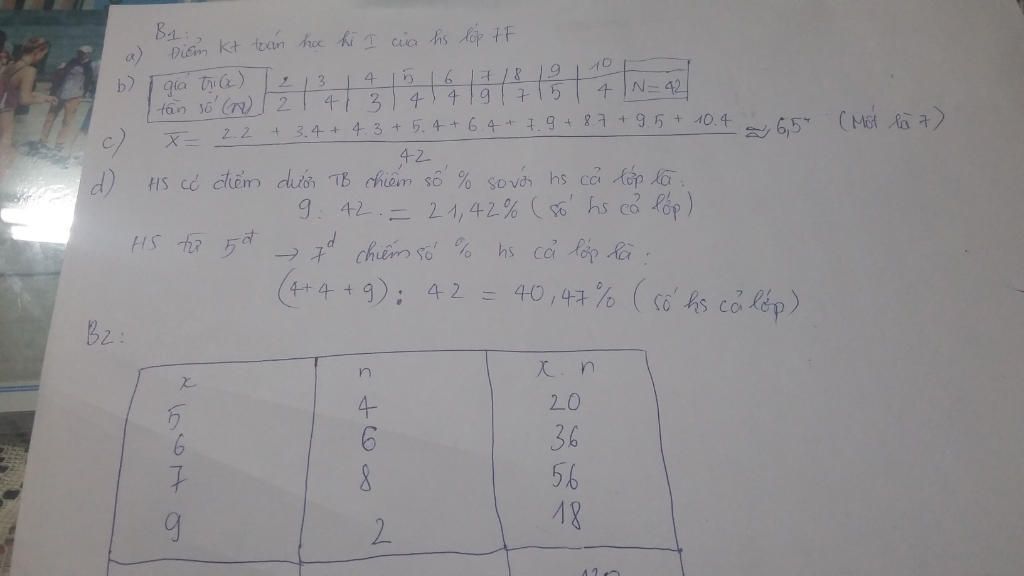 B1:
a) Điểm KT toán học kì I của hs lớp 7F
b) giá trị(x) 2 3 4 5 6 7 8 9 10
tần số (n) 2 4 3 4 4 9 7 5 4 N=42
c) X̄ = 2.2 + 3.4 + 4.3 + 5.4 + 6.4 + 7.9 + 8.7 + 9.5 + 10.4 ≈ 6,5 (Mốt là 7)
42
d) HS có điểm dưới TB chiếm số % so với hs cả lớp là:
9 : 42 = 21,42% (số hs cả lớp)
HS từ 5đ → 7đ chiếm số % hs cả lớp là:
(4+4+9): 42 = 40,47% (số hs cả lớp)
B2:
x n x.n
5 4 20
6 6 36
7 8 56
9 2 18